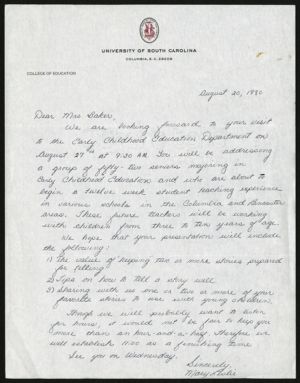 UNIVERSITY OF SOUTH CAROLINA
COLUMBIA, S. C. 29208
COLLEGE OF EDUCATION
August 20, 1980
Dear Mrs. Baker,
We are looking forward to your visit
to the Early Childhood Education Department on
August 27th at 9:30 AM. You will be addressing
a group of fifty-two seniors majoring in
Early Childhood Education and who are about to
begin a twelve week student teaching experience
in various schools in the Columbia and Lancaster
areas. These future teachers will be working
with children from three to ten years of age.
We hope that your presentation will include
the following:
1) The value of keeping two or more stories prepared
for telling
2) Tips on how to tell a story well
3) Sharing with us one or two or more of your
favorite stories to use with young children.
Though we will probably want to listen
for hours, it would not be fair to keep you
more than an hour and a half. Therefore we
will establish 11:00 as a finishing time.
See you on Wednesday.
Sincerely,
Mary